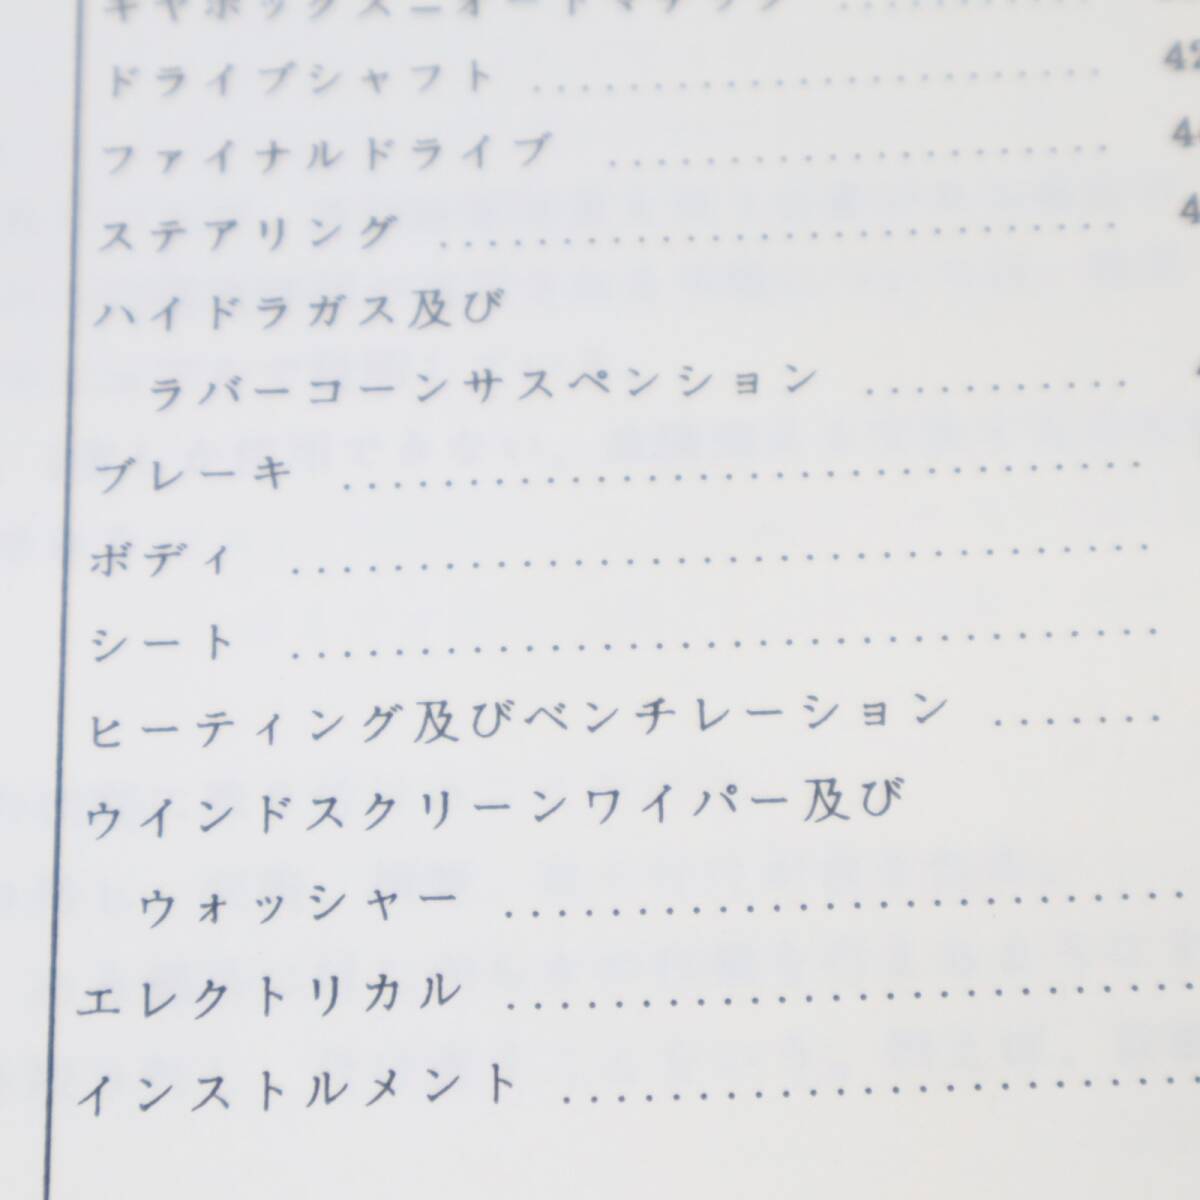 ギヤボックス－オートマチック ............
ドライブシャフト ........................ 42
ファイナルドライブ ..................... 4
ステアリング ............................ 4
ハイドラガス及び
ラバーコーンサスペンション ...........
ブレーキ .................................
ボディ ..................................
シート ..................................
ヒーティング及びベンチレーション .......
ウインドスクリーンワイパー及び
ウォッシャー ...........................
エレクトリカル .........................
インストルメント ........................